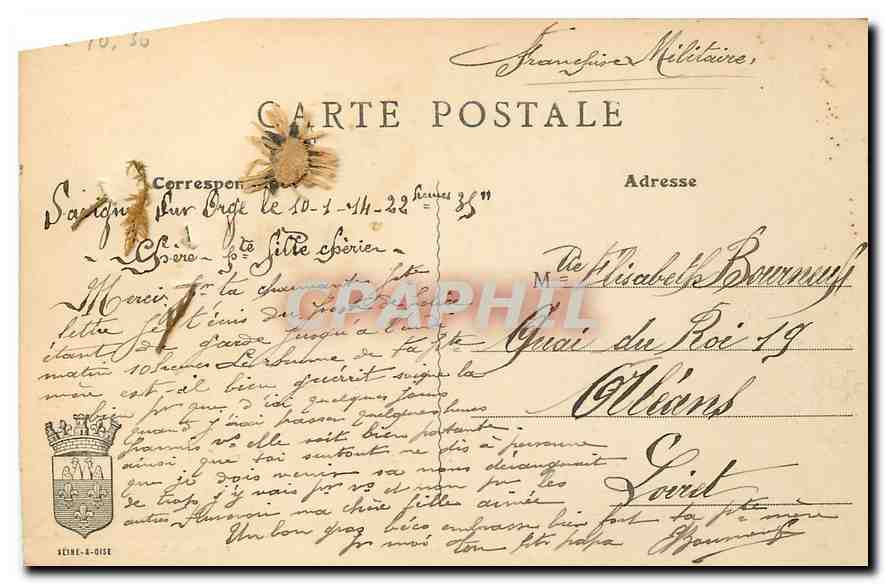 10,30
Franchise Militaire,
CARTE POSTALE
Correspon
Adresse
Savigny sur Orge le 10-1-14-22 heures 35"
Chère pte fille chérie
Mlle Elisabeth Bourneuf
Merci pr ta charmante pte
lettre du
Quai du Roi 19
étant de garde jusqu'à
matin 10 heures Le rhume de ta pte
Orléans
mère est-il bien guérit soigne la
bien pr que d'ici quelques jours
quand j'aurai passer quelques heures
parmis vs elle soit bien portante
ainsi que toi surtout ne dis à personne
que je dois venir sa nous dérangerait
Loiret
de trop j'y vais pr vs et non pr les
autres Aurevoir ma chère fille aimée
Un bon gros béco embrasse bien fort ta pte mère
pr moi ton ptit papa Bourneuf
SEINE-&-OISE
CPAPHIL